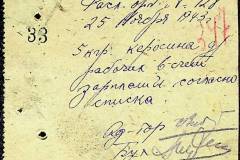 Расх. орд. № 128
25 Ноября 1943.
33
5 кгр. керосина д/
рабочих в счет
зарплаты согласно
списка.
Бух